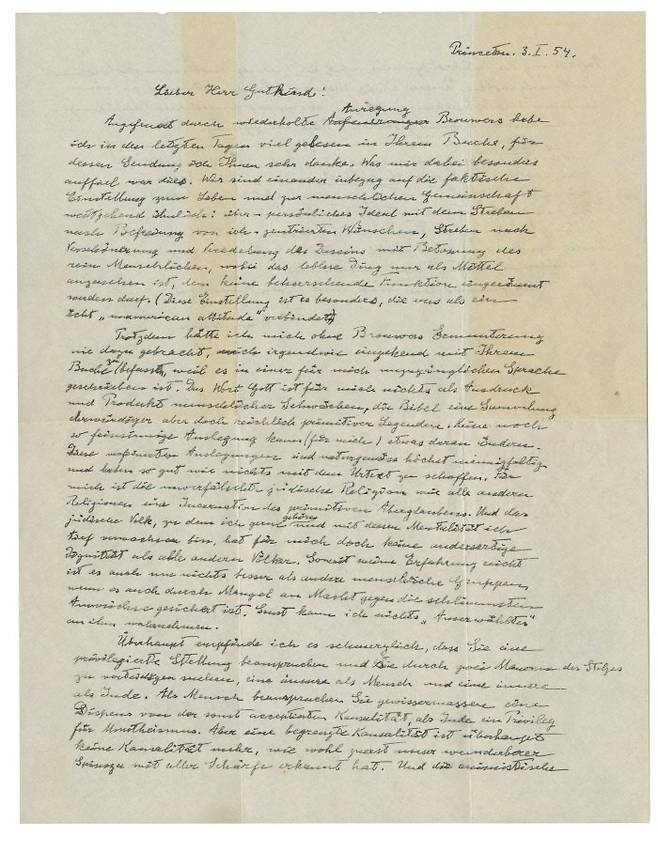 Princeton. 3. I. 54.
Lieber Herr Gutkind!
Anregung
Angefeuert durch wiederholte Brouwers habe
ich in den letzten Tagen viel gelesen in Ihrem Buche, für
dessen Sendung ich Ihnen sehr danke. Was mir dabei besonders
auffiel war dies. Wir sind einander inbezug auf die faktische
Einstellung zum Leben und zur menschlichen Gemeinschaft
weitgehend ähnlich: über-persönliches Ideal mit dem Streben
nach Befreiung von ich-zentrierten Wünschen, Streben nach
Verschönerung und Veredelung des Daseins mit Betonung des
rein Menschlichen, wobei das leblose Ding nur als Mittel
anzusehen ist, dem keine beherrschende Funktion eingeräumt
werden darf. (Diese Einstellung ist es besonders, die uns als ein
echt „unamerican attitude" verbindet)
Trotzdem hätte ich mich ohne Brouwers Ermunterung
nie dazu gebracht, mich irgendwie eingehend mit Ihrem
Buche zu befassen, weil es in einer für mich unzugänglichen Sprache
geschrieben ist. Das Wort Gott ist für mich nichts als Ausdruck
und Produkt menschlicher Schwächen, die Bibel eine Sammlung
ehrwürdiger aber doch reichlich primitiver Legenden. Keine noch
so feinsinnige Auslegung kann (für mich) etwas daran ändern.
Diese verfeinerten Auslegungen sind naturgemäss höchst mannigfaltig
und haben so gut wie nichts mit dem Urtext zu schaffen. Für
mich ist die unverfälschte jüdische Religion wie alle anderen
Religionen eine Incarnation des primitiven Aberglaubens. Und das
jüdische Volk, zu dem ich gerne gehöre und mit dessen Mentalität ich
tief verwachsen bin, hat für mich doch keine andersartige
Dignität als alle anderen Völker. Soweit meine Erfahrung reicht
ist es auch um nichts besser als andere menschliche Gruppen
wenn es auch durch Mangel an Macht gegen die schlimmsten
Auswüchse gesichert ist. Sonst kann ich nichts „Auserwähltes"
an ihm wahrnehmen.
Überhaupt empfinde ich es schmerzlich, dass Sie eine
privilegierte Stellung beanspruchen und sie durch zwei Mauern des Stolzes
zu verteidigen suchen, eine äussere als Mensch und eine innere
als Jude. Als Mensch beanspruchen Sie gewissermassen einen
Dispens von der sonst acceptierten Kausalität, als Jude ein Privileg
für Monotheismus. Aber eine begrenzte Kausalität ist überhaupt
keine Kausalität mehr, wie wohl zuerst unser wunderbarer
Spinoza mit aller Schärfe erkannt hat. Und die animistische